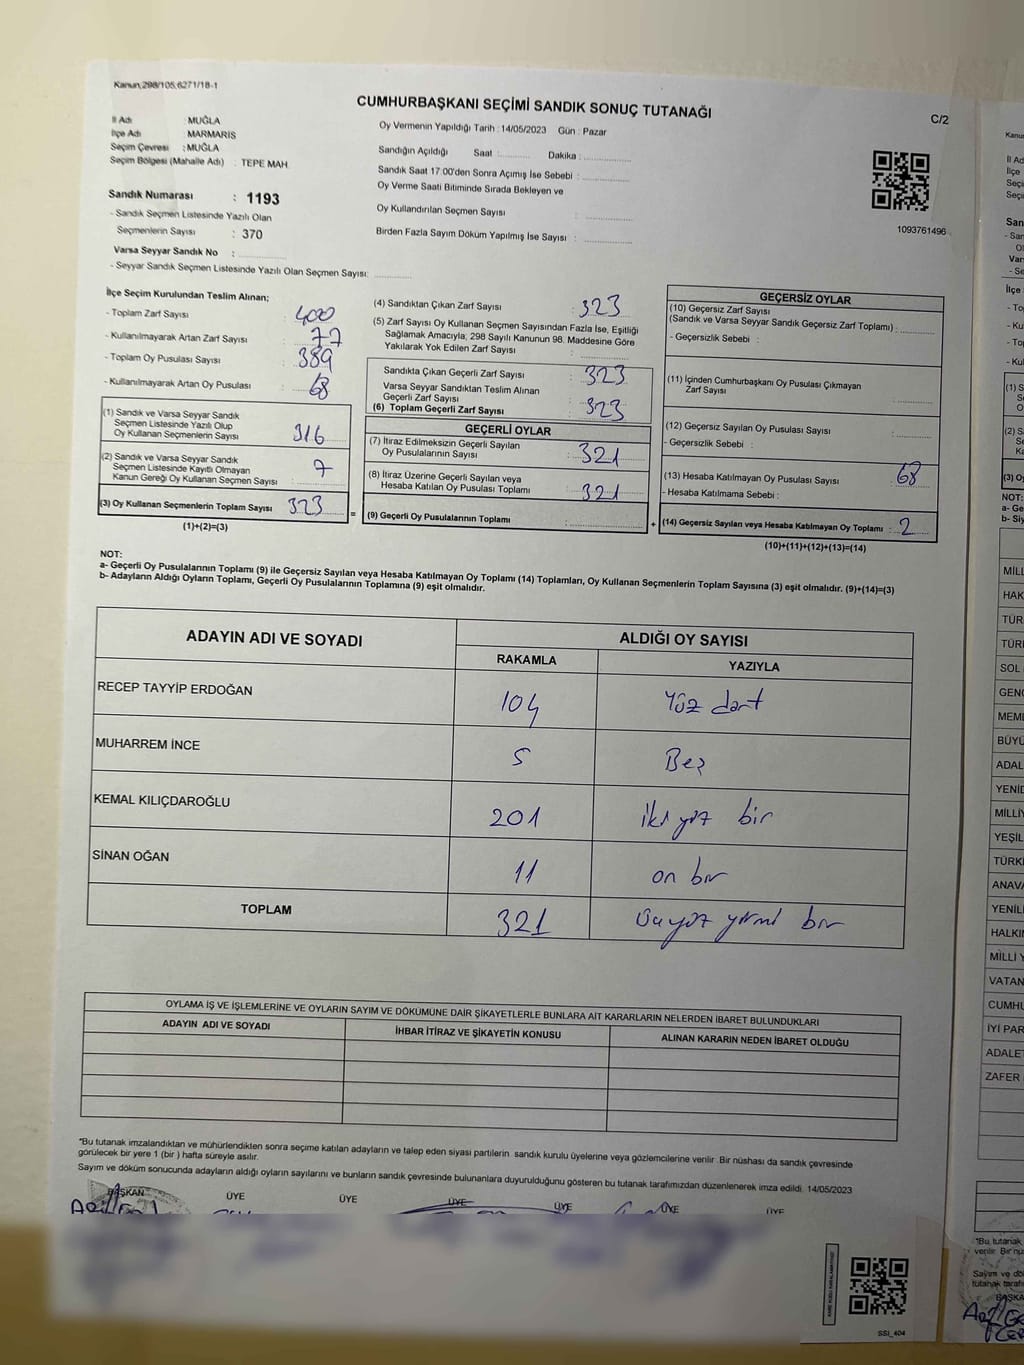 Kanun;298/105,6271/18-1
CUMHURBAŞKANI SEÇİMİ SANDIK SONUÇ TUTANAĞI
C/2
İl Adı : MUĞLA
İlçe Adı : MARMARİS
Seçim Çevresi : MUĞLA
Seçim Bölgesi (Mahalle Adı) : TEPE MAH.
Sandık Numarası : 1193
- Sandık Seçmen Listesinde Yazılı Olan
Seçmenlerin Sayısı : 370
Varsa Seyyar Sandık No :
- Seyyar Sandık Seçmen Listesinde Yazılı Olan Seçmen Sayısı:
Oy Vermenin Yapıldığı Tarih : 14/05/2023 Gün : Pazar
Sandığın Açıldığı Saat : Dakika :
Sandık Saat 17:00'den Sonra Açımış İse Sebebi :
Oy Verme Saati Bitiminde Sırada Bekleyen ve
Oy Kullandırılan Seçmen Sayısı :
Birden Fazla Sayım Döküm Yapılmış İse Sayısı :
1093761496
İlçe Seçim Kurulundan Teslim Alınan;
- Toplam Zarf Sayısı : 400
- Kullanılmayarak Artan Zarf Sayısı : 77
- Toplam Oy Pusulası Sayısı : 389
- Kullanılmayarak Artan Oy Pusulası : 68
(1) Sandık ve Varsa Seyyar Sandık
Seçmen Listesinde Yazılı Olup
Oy Kullanan Seçmenlerin Sayısı : 316
(2) Sandık ve Varsa Seyyar Sandık
Seçmen Listesinde Kayıtlı Olmayan
Kanun Gereği Oy Kullanan Seçmen Sayısı : 7
(3) Oy Kullanan Seçmenlerin Toplam Sayısı : 323
(1)+(2)=(3)
(4) Sandıktan Çıkan Zarf Sayısı : 323
(5) Zarf Sayısı Oy Kullanan Seçmen Sayısından Fazla İse, Eşitliği
Sağlamak Amacıyla, 298 Sayılı Kanunun 98. Maddesine Göre
Yakılarak Yok Edilen Zarf Sayısı :
Sandıkta Çıkan Geçerli Zarf Sayısı : 323
Varsa Seyyar Sandıktan Teslim Alınan
Geçerli Zarf Sayısı :
(6) Toplam Geçerli Zarf Sayısı : 323
GEÇERLİ OYLAR
(7) İtiraz Edilmeksizin Geçerli Sayılan
Oy Pusulalarının Sayısı : 321
(8) İtiraz Üzerine Geçerli Sayılan veya
Hesaba Katılan Oy Pusulası Toplamı : 321
= (9) Geçerli Oy Pusulalarının Toplamı :
GEÇERSİZ OYLAR
(10) Geçersiz Zarf Sayısı
(Sandık ve Varsa Seyyar Sandık Geçersiz Zarf Toplamı) :
- Geçersizlik Sebebi :
(11) İçinden Cumhurbaşkanı Oy Pusulası Çıkmayan
Zarf Sayısı :
(12) Geçersiz Sayılan Oy Pusulası Sayısı :
- Geçersizlik Sebebi :
(13) Hesaba Katılmayan Oy Pusulası Sayısı : 68
- Hesaba Katılmama Sebebi :
+ (14) Geçersiz Sayılan veya Hesaba Katılmayan Oy Toplamı : 2
(10)+(11)+(12)+(13)=(14)
NOT:
a- Geçerli Oy Pusulalarının Toplamı (9) ile Geçersiz Sayılan veya Hesaba Katılmayan Oy Toplamı (14) Toplamları, Oy Kullanan Seçmenlerin Toplam Sayısına (3) eşit olmalıdır. (9)+(14)=(3)
b- Adayların Aldığı Oyların Toplamı, Geçerli Oy Pusulalarının Toplamına (9) eşit olmalıdır.
ADAYIN ADI VE SOYADI
ALDIĞI OY SAYISI
RAKAMLA YAZIYLA
RECEP TAYYİP ERDOĞAN 104 Yüz dört
MUHARREM İNCE 5 Beş
KEMAL KILIÇDAROĞLU 201 iki yüz bir
SİNAN OĞAN 11 on bir
TOPLAM 321 üçyüz yirmi bir
OYLAMA İŞ VE İŞLEMLERİNE VE OYLARIN SAYIM VE DÖKÜMÜNE DAİR ŞİKAYETLERLE BUNLARA AİT KARARLARIN NELERDEN İBARET BULUNDUKLARI
ADAYIN ADI VE SOYADI İHBAR İTİRAZ VE ŞİKAYETİN KONUSU ALINAN KARARIN NEDEN İBARET OLDUĞU
*Bu tutanak imzalandıktan ve mühürlendikten sonra seçime katılan adayların ve talep eden siyasi partilerin sandık kurulu üyelerine veya gözlemcilerine verilir. Bir nüshası da sandık çevresinde
görülecek bir yere 1 (bir ) hafta süreyle asılır.
Sayım ve döküm sonucunda adayların aldığı oyların sayılarını ve bunların sandık çevresinde bulunanlara duyurulduğunu gösteren bu tutanak tarafımızdan düzenlenerek imza edildi. 14/05/2023
BAŞKAN ÜYE ÜYE ÜYE ÜYE ÜYE ÜYE
SSI_404